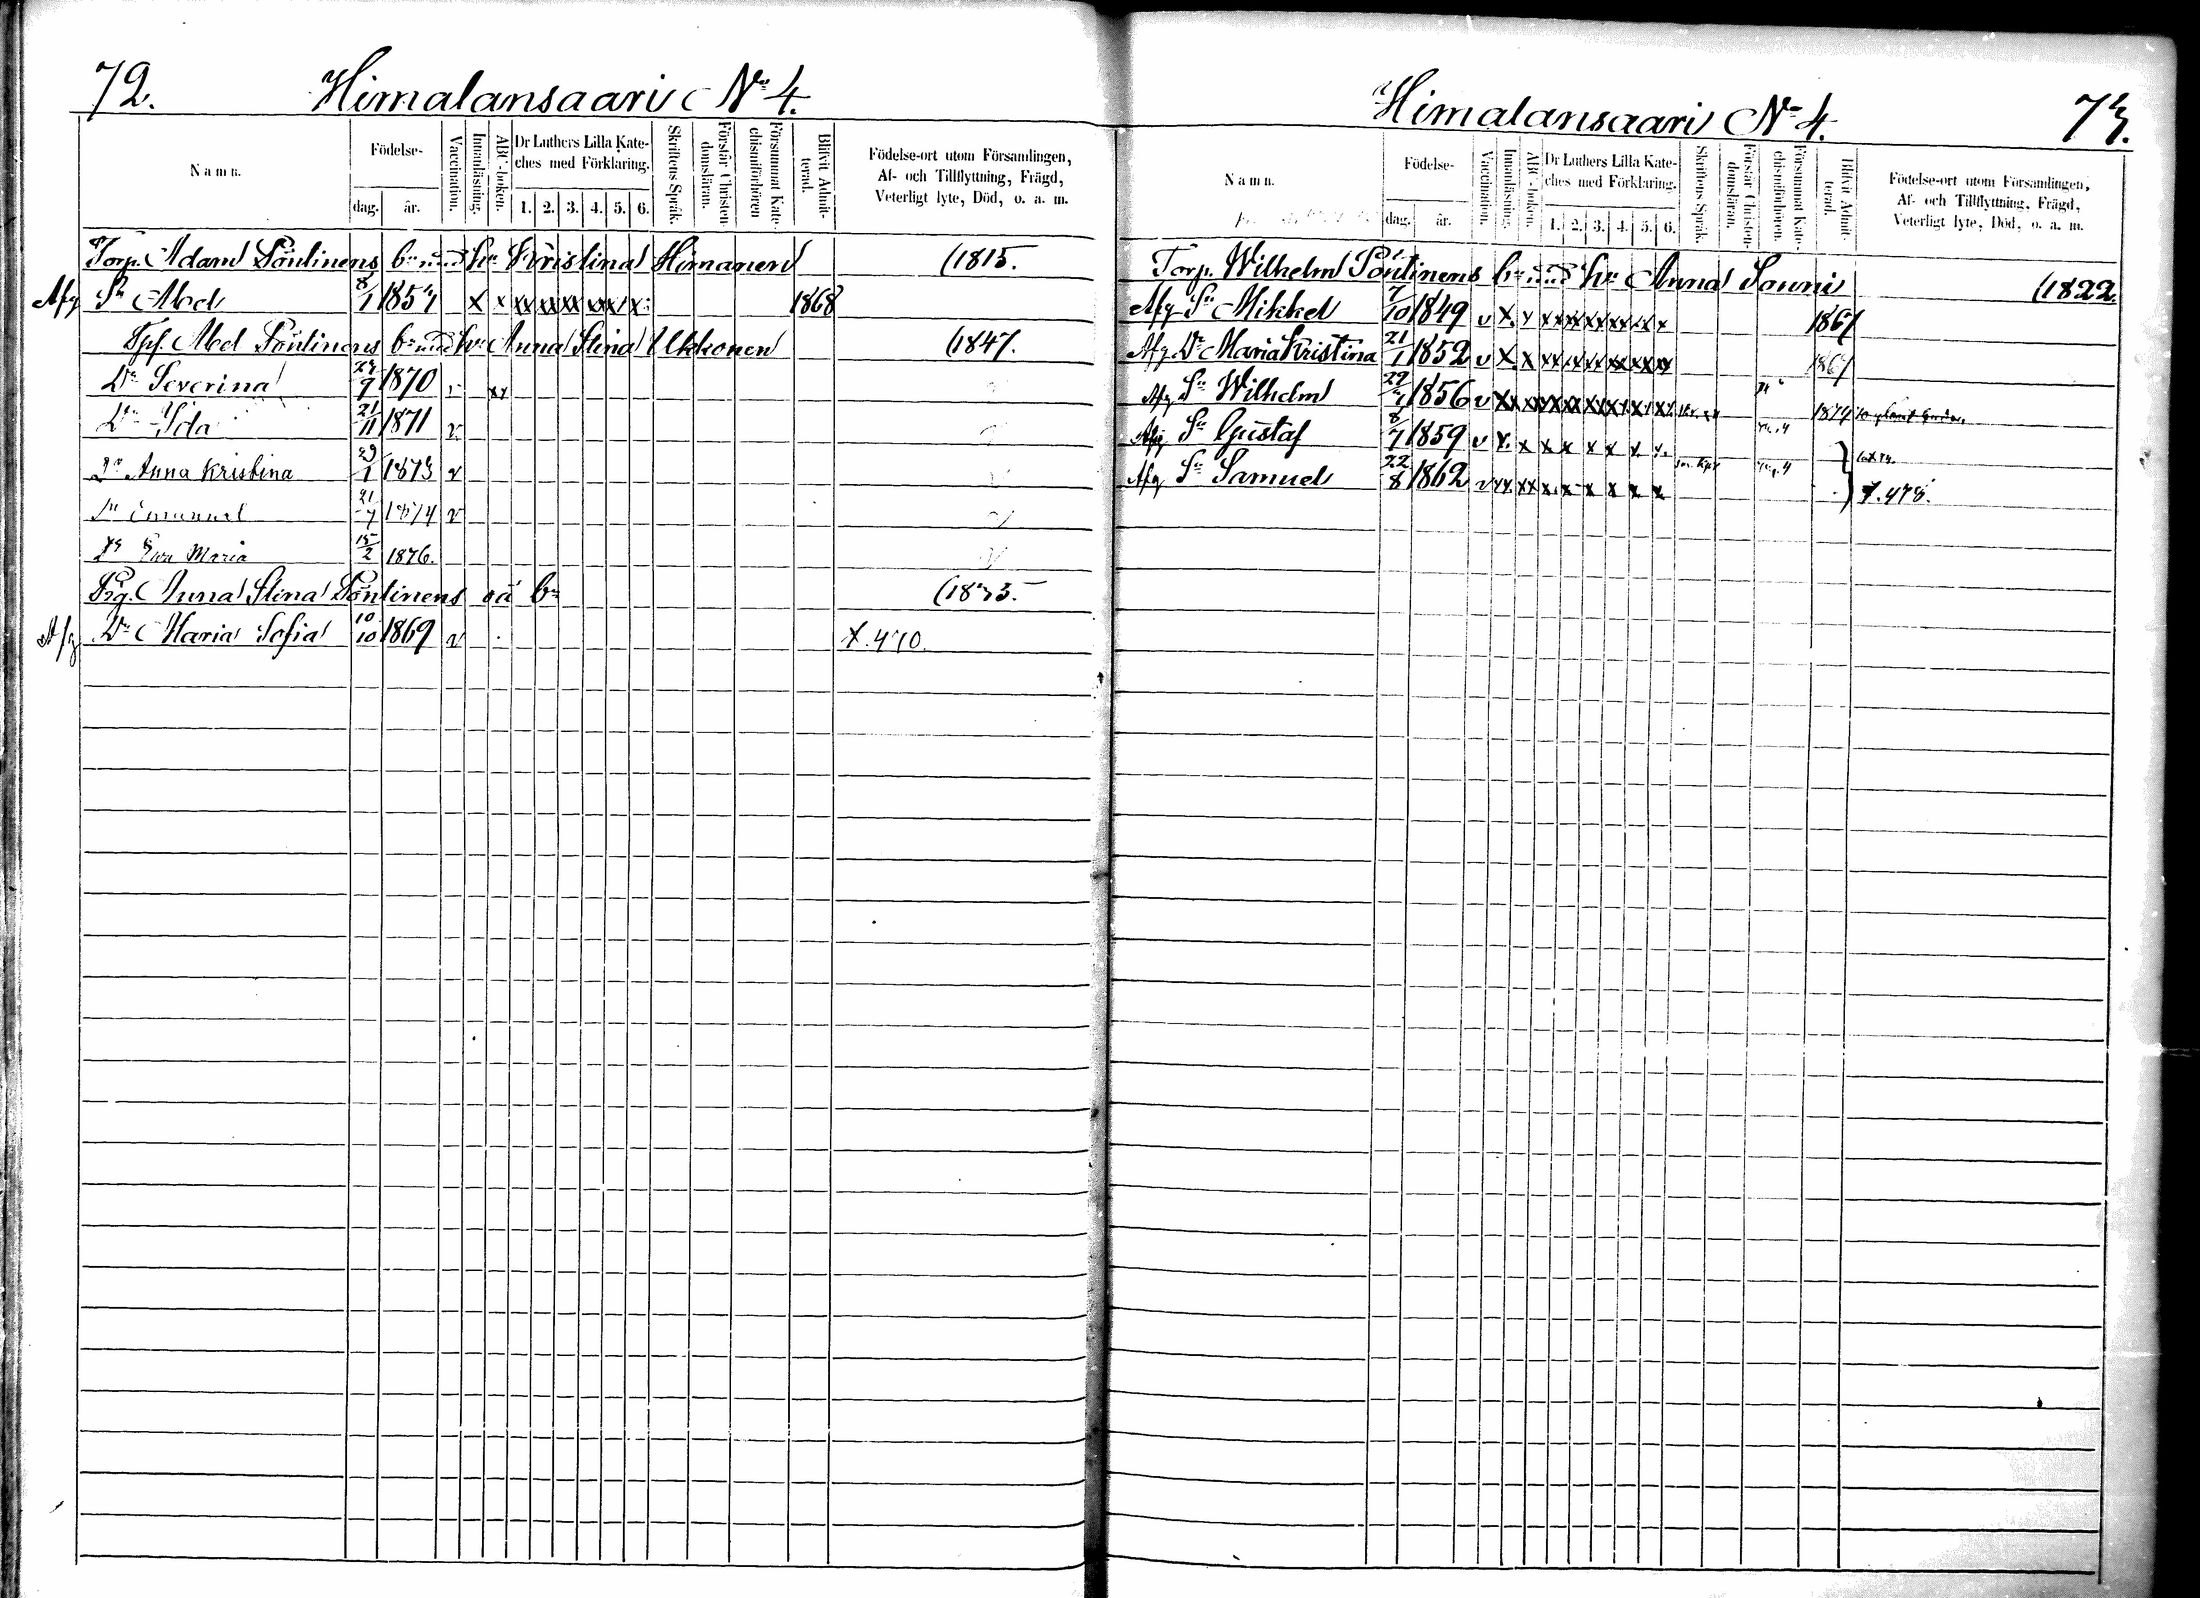 72.
Himalansaari No 4.
Namn.
Födelse-
dag.
år.
Vaccination.
Innanläsning.
ABC-boken.
Dr Luthers Lilla Kate-
ches med Förklaring.
1. 2. 3. 4. 5. 6.
Skriftens Språk.
Förstår Christen-
domsläran.
Försummat Kate-
chismiförhören
Blifvit Admit-
terad.
Födelse-ort utom Församlingen,
Af- och Tillflyttning, Frägd,
Veterligt lyte, Död, o. a. m.
Torp. Adam Pöntinens bn med hu Kristina Himanen (1815.
Afg Sn Abel 8/1 1851 x x xx xx xx xx x x 1868
Tpf. Abel Pöntinens bn med hu Anna Stina Ukkonen (1847.
Dr Severina 7 1870 v xx
Dr Ida 21/11 1871 v
Dr Anna Kristina 1 1873 v
Sn Emanuel 21/7 1874 v
Dr Ewa Maria 15/2 1876.
Pig. Anna Stina Pöntinens oä bn
Afg Dr Maria Sofia 10/10 1869 v X. 470.
Himalansaari No 4.
73.
Namn.
Födelse-
dag.
år.
Vaccination.
Innanläsning.
ABC-boken.
Dr Luthers Lilla Kate-
ches med Förklaring.
1. 2. 3. 4. 5. 6.
Skriftens Språk.
Förstår Christen-
domsläran.
Försummat Kate-
chismiförhören.
Blifvit Admit-
terad.
Födelse-ort utom Församlingen,
Af- och Tillflyttning, Frägd,
Veterligt lyte, Död, o. a. m.
Torp. Wilhelm Pöntinens bn med hu Anna Souni (1822.
Afg Sn Mikkel 7/10 1849 v x. x xx xx xx xx xx x 1867
Afg Dr Maria Kristina 21/1 1852 v x x xx xx xx xx xx xx 1867
Afg Sn Wilhelm 29 1856 v xx xx xx xx xx xx xx 1874
Afg Sn Gustaf 8/7 1859 v x. x x x x x x x.
Afg Sn Samuel 22/8 1862 v xx xx x x x x x x X. 478.